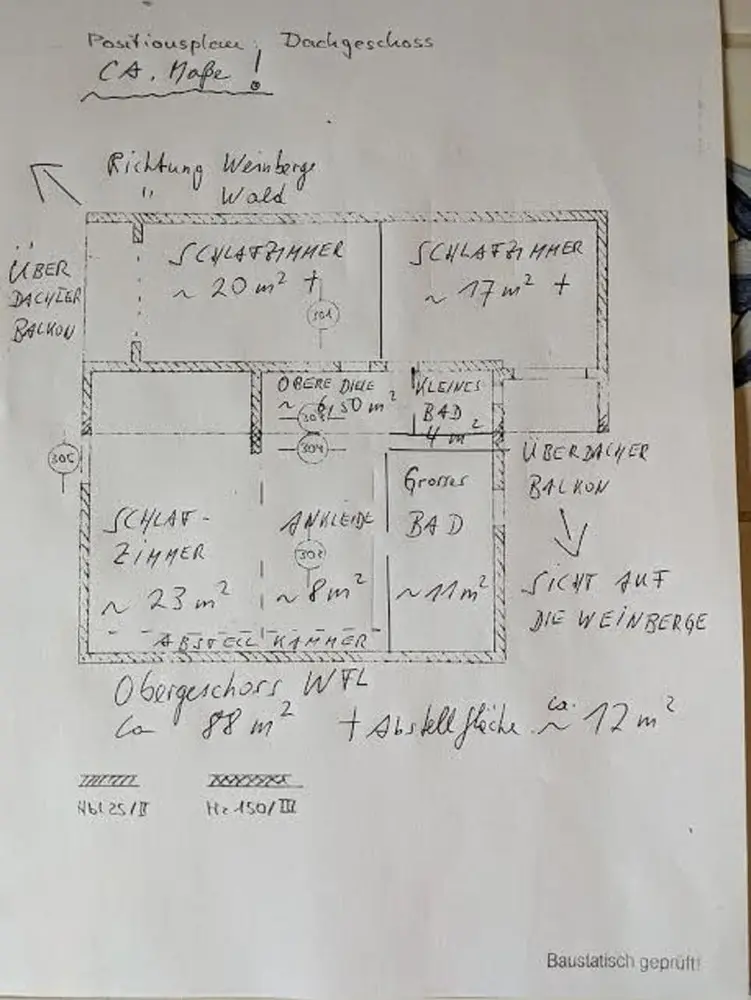 Positionsplan: Dachgeschoss
CA. Maße !
Richtung Weinberge
" Wald
ÜBER
DACHTER
BALKON
SCHLAFZIMMER
~ 20 m² +
SCHLAFZIMMER
~ 17 m² +
301
OBERE DIELE
~ 6,50 m²
KLEINES
BAD
4 m²
303
304
305
ÜBERDACHER
BALKON
SICHT AUF
DIE WEINBERGE
SCHLAF-
ZIMMER
~ 23 m²
ANKLEIDE
302
~ 8 m²
Grosses
BAD
~ 11 m²
ABSTELLKAMMER
Obergeschoss WFL
ca 88 m² + Abstellfläche ca. ~ 12 m²
Hbl 25/II
Hz 150/III
Baustatisch geprüft!